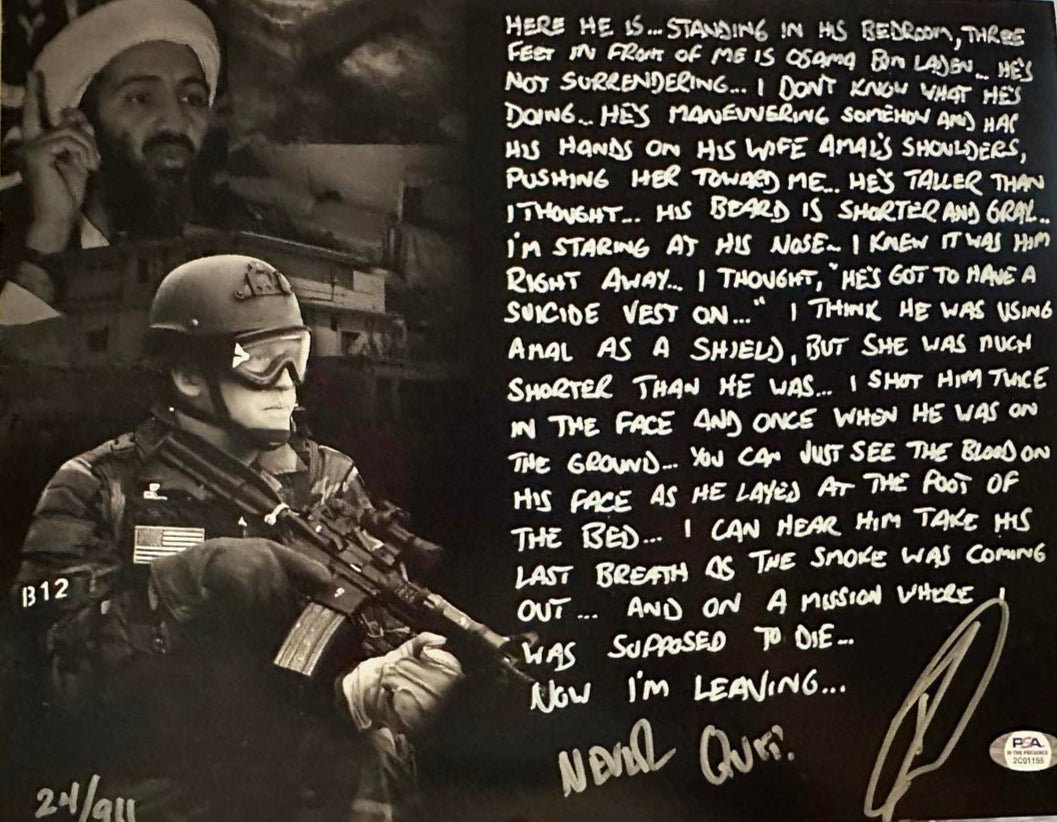 HERE HE IS... STANDING IN HIS BEDROOM, THREE
FEET IN FRONT OF ME IS OSAMA BIN LADEN... HE'S
NOT SURRENDERING... I DON'T KNOW WHAT HE'S
DOING... HE'S MANEUVERING SOMEHOW AND HAS
HIS HANDS ON HIS WIFE AMAL'S SHOULDERS,
PUSHING HER TOWARD ME... HE'S TALLER THAN
I THOUGHT... HIS BEARD IS SHORTER AND GRAY...
I'M STARING AT HIS NOSE... I KNEW IT WAS HIM
RIGHT AWAY... I THOUGHT, "HE'S GOT TO HAVE A
SUICIDE VEST ON..." I THINK HE WAS USING
AMAL AS A SHIELD, BUT SHE WAS MUCH
SHORTER THAN HE WAS... I SHOT HIM TWICE
IN THE FACE AND ONCE WHEN HE WAS ON
THE GROUND... YOU CAN JUST SEE THE BLOOD ON
HIS FACE AS HE LAYED AT THE FOOT OF
THE BED... I CAN HEAR HIM TAKE HIS
LAST BREATH AS THE SMOKE WAS COMING
OUT... AND ON A MISSION WHERE I
WAS SUPPOSED TO DIE...
NOW I'M LEAVING...
NEVER QUIT!
B12
24/911
PSA
IN THE PRESENCE
2C01156